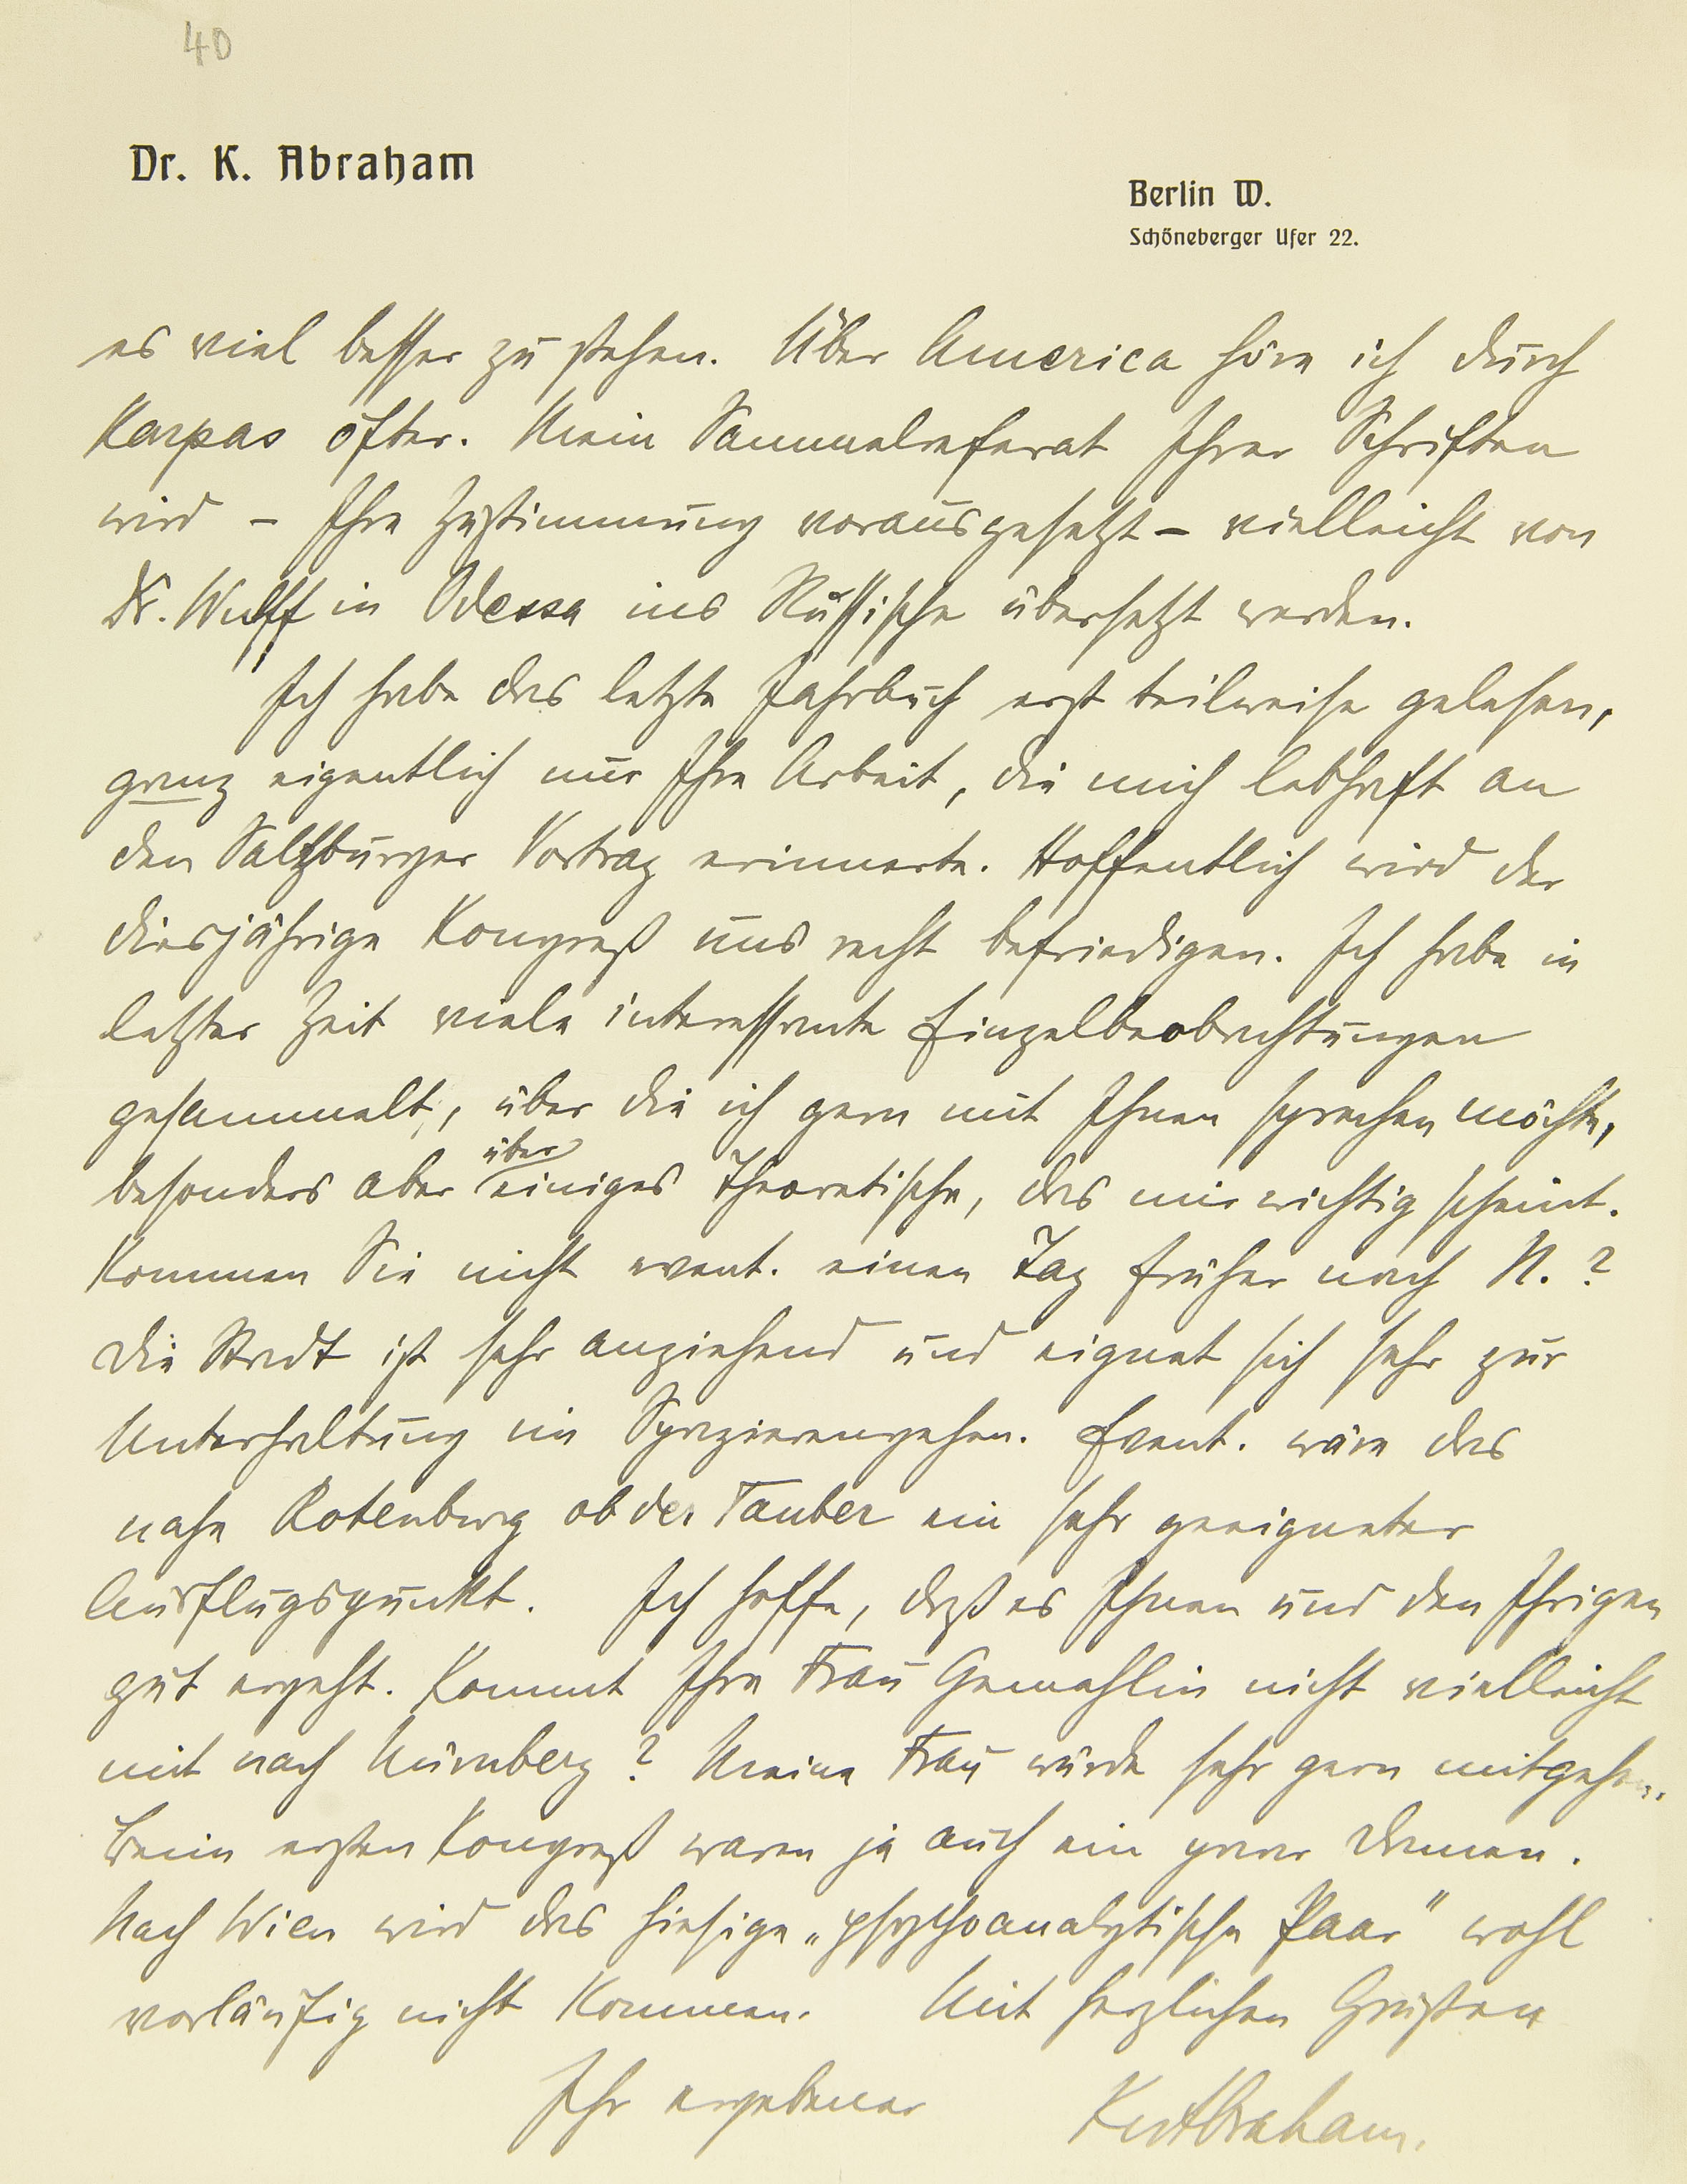 40
Dr. K. Abraham
Berlin W.
Schöneberger Ufer 22.
es viel besser zu stehen. Über America höre ich durch
Karpas öfter. Mein Sammelreferat Ihrer Schriften
wird – Ihre Zustimmung vorausgesetzt – vielleicht von
Dr. Wulff in Odessa ins Russische übersetzt werden.
Ich habe das letzte Jahrbuch erst teilweise gelesen,
ganz eigentlich nur Ihre Arbeit, die mich lebhaft an
den Salzburger Vortrag erinnerte. Hoffentlich wird der
diesjährige Kongreß uns recht befriedigen. Ich habe in
letzter Zeit viele interessante Einzelbeobachtungen
gesammelt, über die ich gern mit Ihnen sprechen möchte,
besonders aber über einiges Theoretische, das mir wichtig scheint.
Kommen Sie nicht event. einen Tag früher nach N.?
Die Stadt ist sehr anziehend und eignet sich sehr zur
Unterhaltung im Spazierengehen. Event. wäre das
nahe Rotenburg ob der Tauber ein sehr geeigneter
Ausflugspunkt. Ich hoffe, daß es Ihnen und den Ihrigen
gut ergeht. Kommt Ihre Frau Gemahlin nicht vielleicht
mit nach Nürnberg? Meine Frau würde sehr gern mitgehen.
Beim ersten Kongreß waren ja auch ein paar Damen.
Nach Wien wird das hiesige „psychoanalytische Paar" wohl
vorläufig nicht kommen. Mit herzlichen Grüßen
Ihr ergebener Karl Abraham.